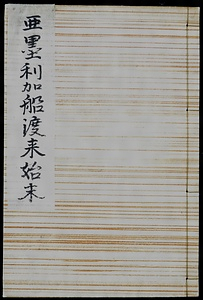 亜墨利加船渡来始末